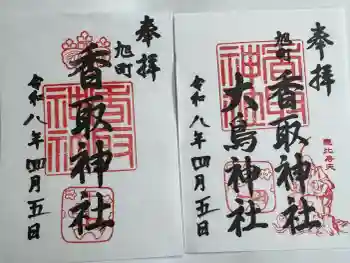 奉拝
旭町
香取神社
香取神社
令和八年四月五日
奉拝
旭町
香取神社
大鳥神社
香取神社
恵比寿天
令和八年四月五日